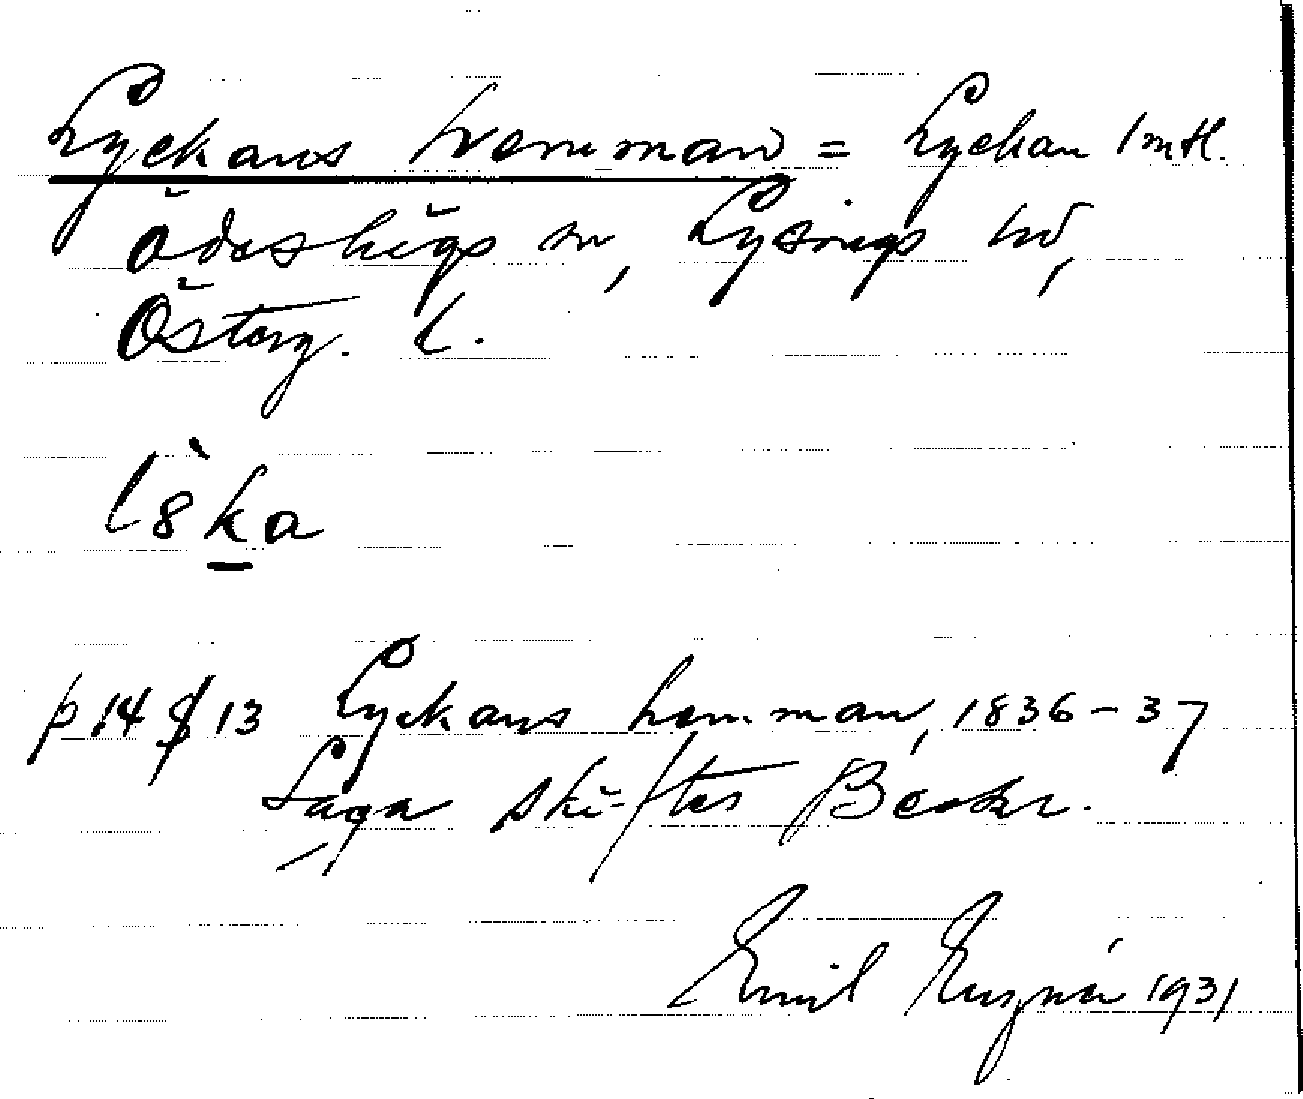 Lyckans hemman = Lyckan 1 mtl.
Ödeshögs sn, Lysings hd,
Österg. l.
l8̀ka
p 14 § 13 Lyckans hemman, 1836-37
Laga skiftes Beskr.
Emil 1931